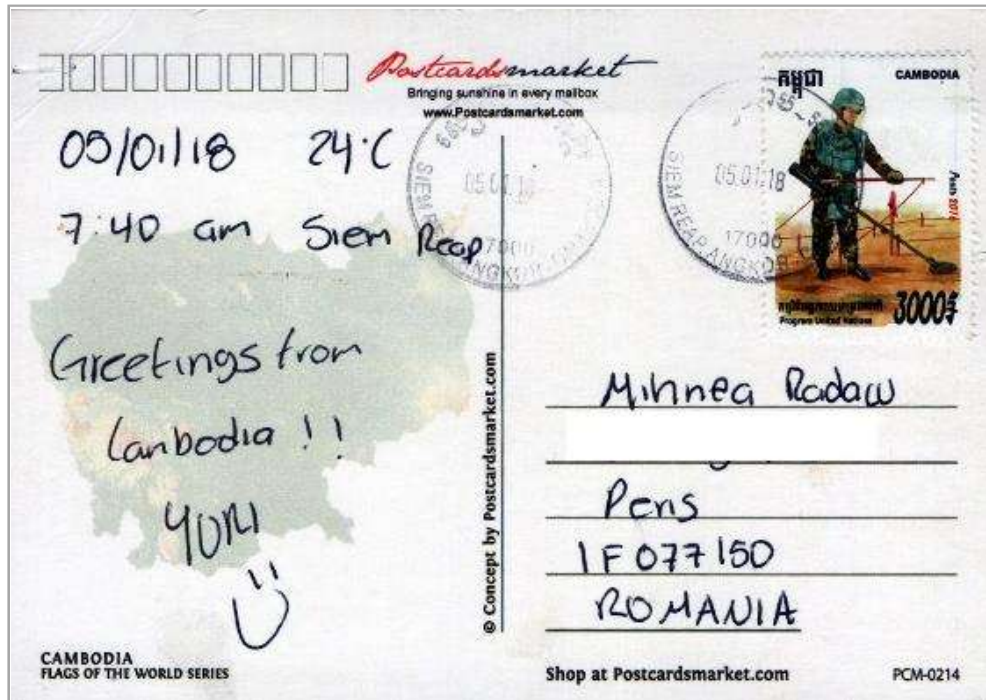 Postcardsmarket
Bringing sunshine in every mailbox
www.Postcardsmarket.com
05/01/18 24°C
7:40 am Siem Reap
Greetings from
Cambodia !!
YURI
CAMBODIA
FLAGS OF THE WORLD SERIES
© Concept by Postcardsmarket.com
05.01.18
SIEM REAP ANGKOR
17000
05.01.18
SIEM REAP ANGKOR
17000
កម្ពុជា CAMBODIA
3000៛
Program United Nations
Mihnea Radaw
Peris
IF 077150
ROMANIA
Shop at Postcardsmarket.com
PCM-0214